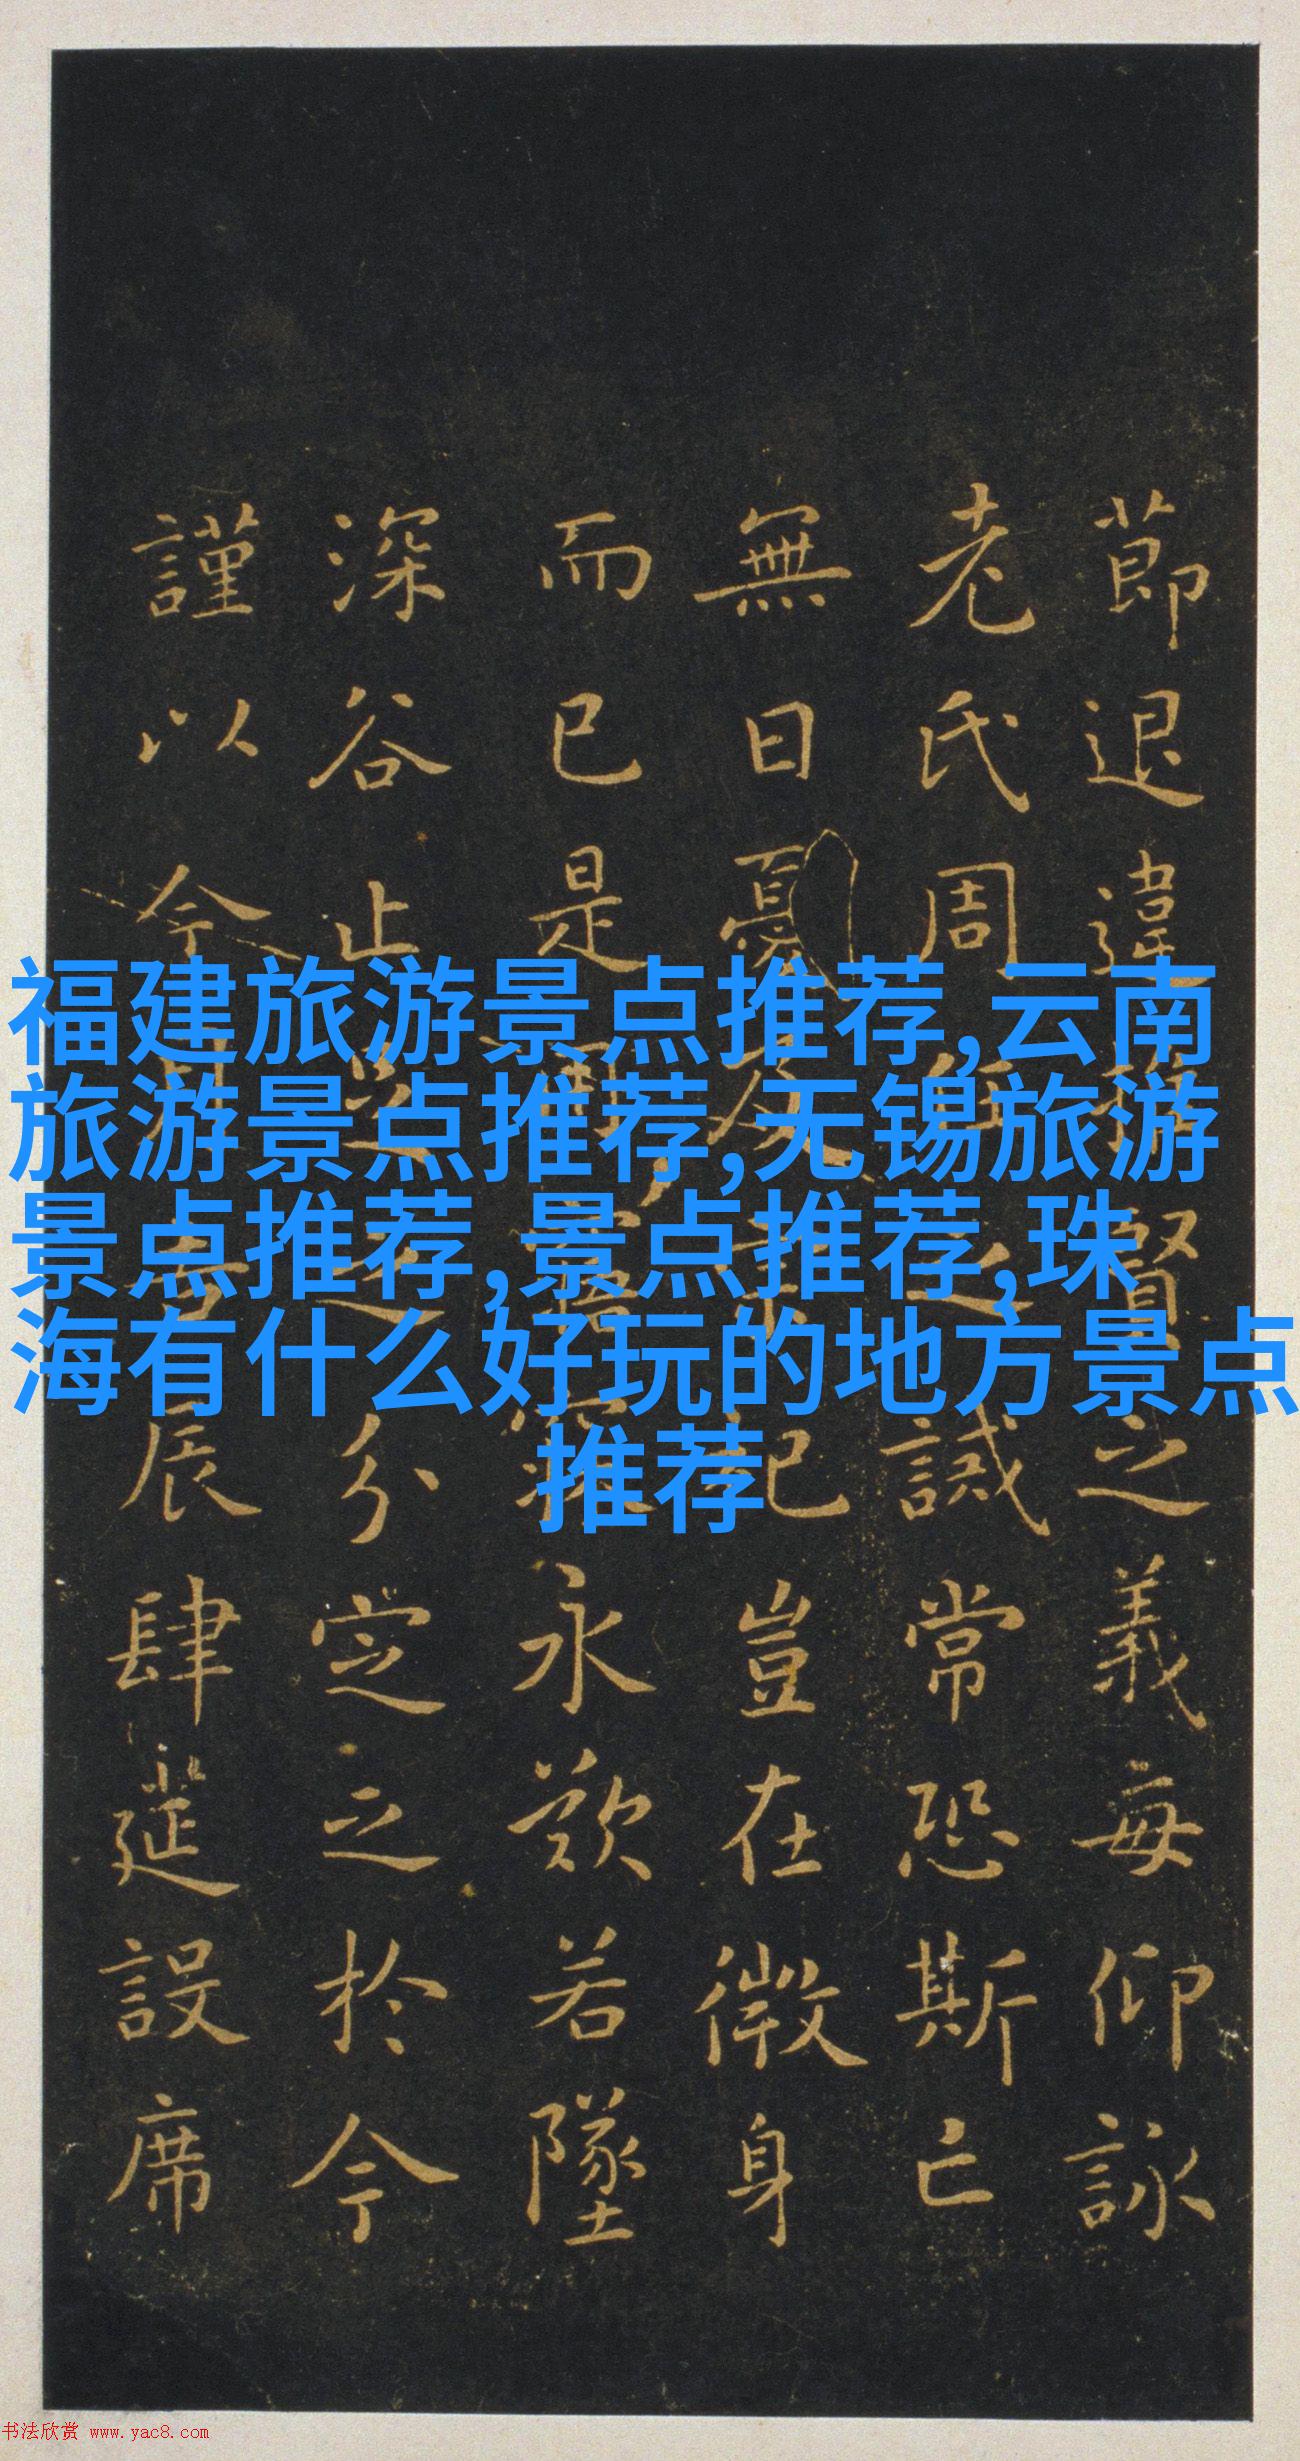 節退違推賢之義每仰詠
老氏周任之誡常恐斯亡
無日憂及宗祀豈在微身
而已是用寤寐永歎若墜
深谷止足之分定之於今
謹以今月吉辰肆筵設席
福建旅游景点推荐,云南
旅游景点推荐,无锡旅游
景点推荐,景点推荐,珠
海有什么好玩的地方景点
推荐
书法欣赏 www.yac8.com